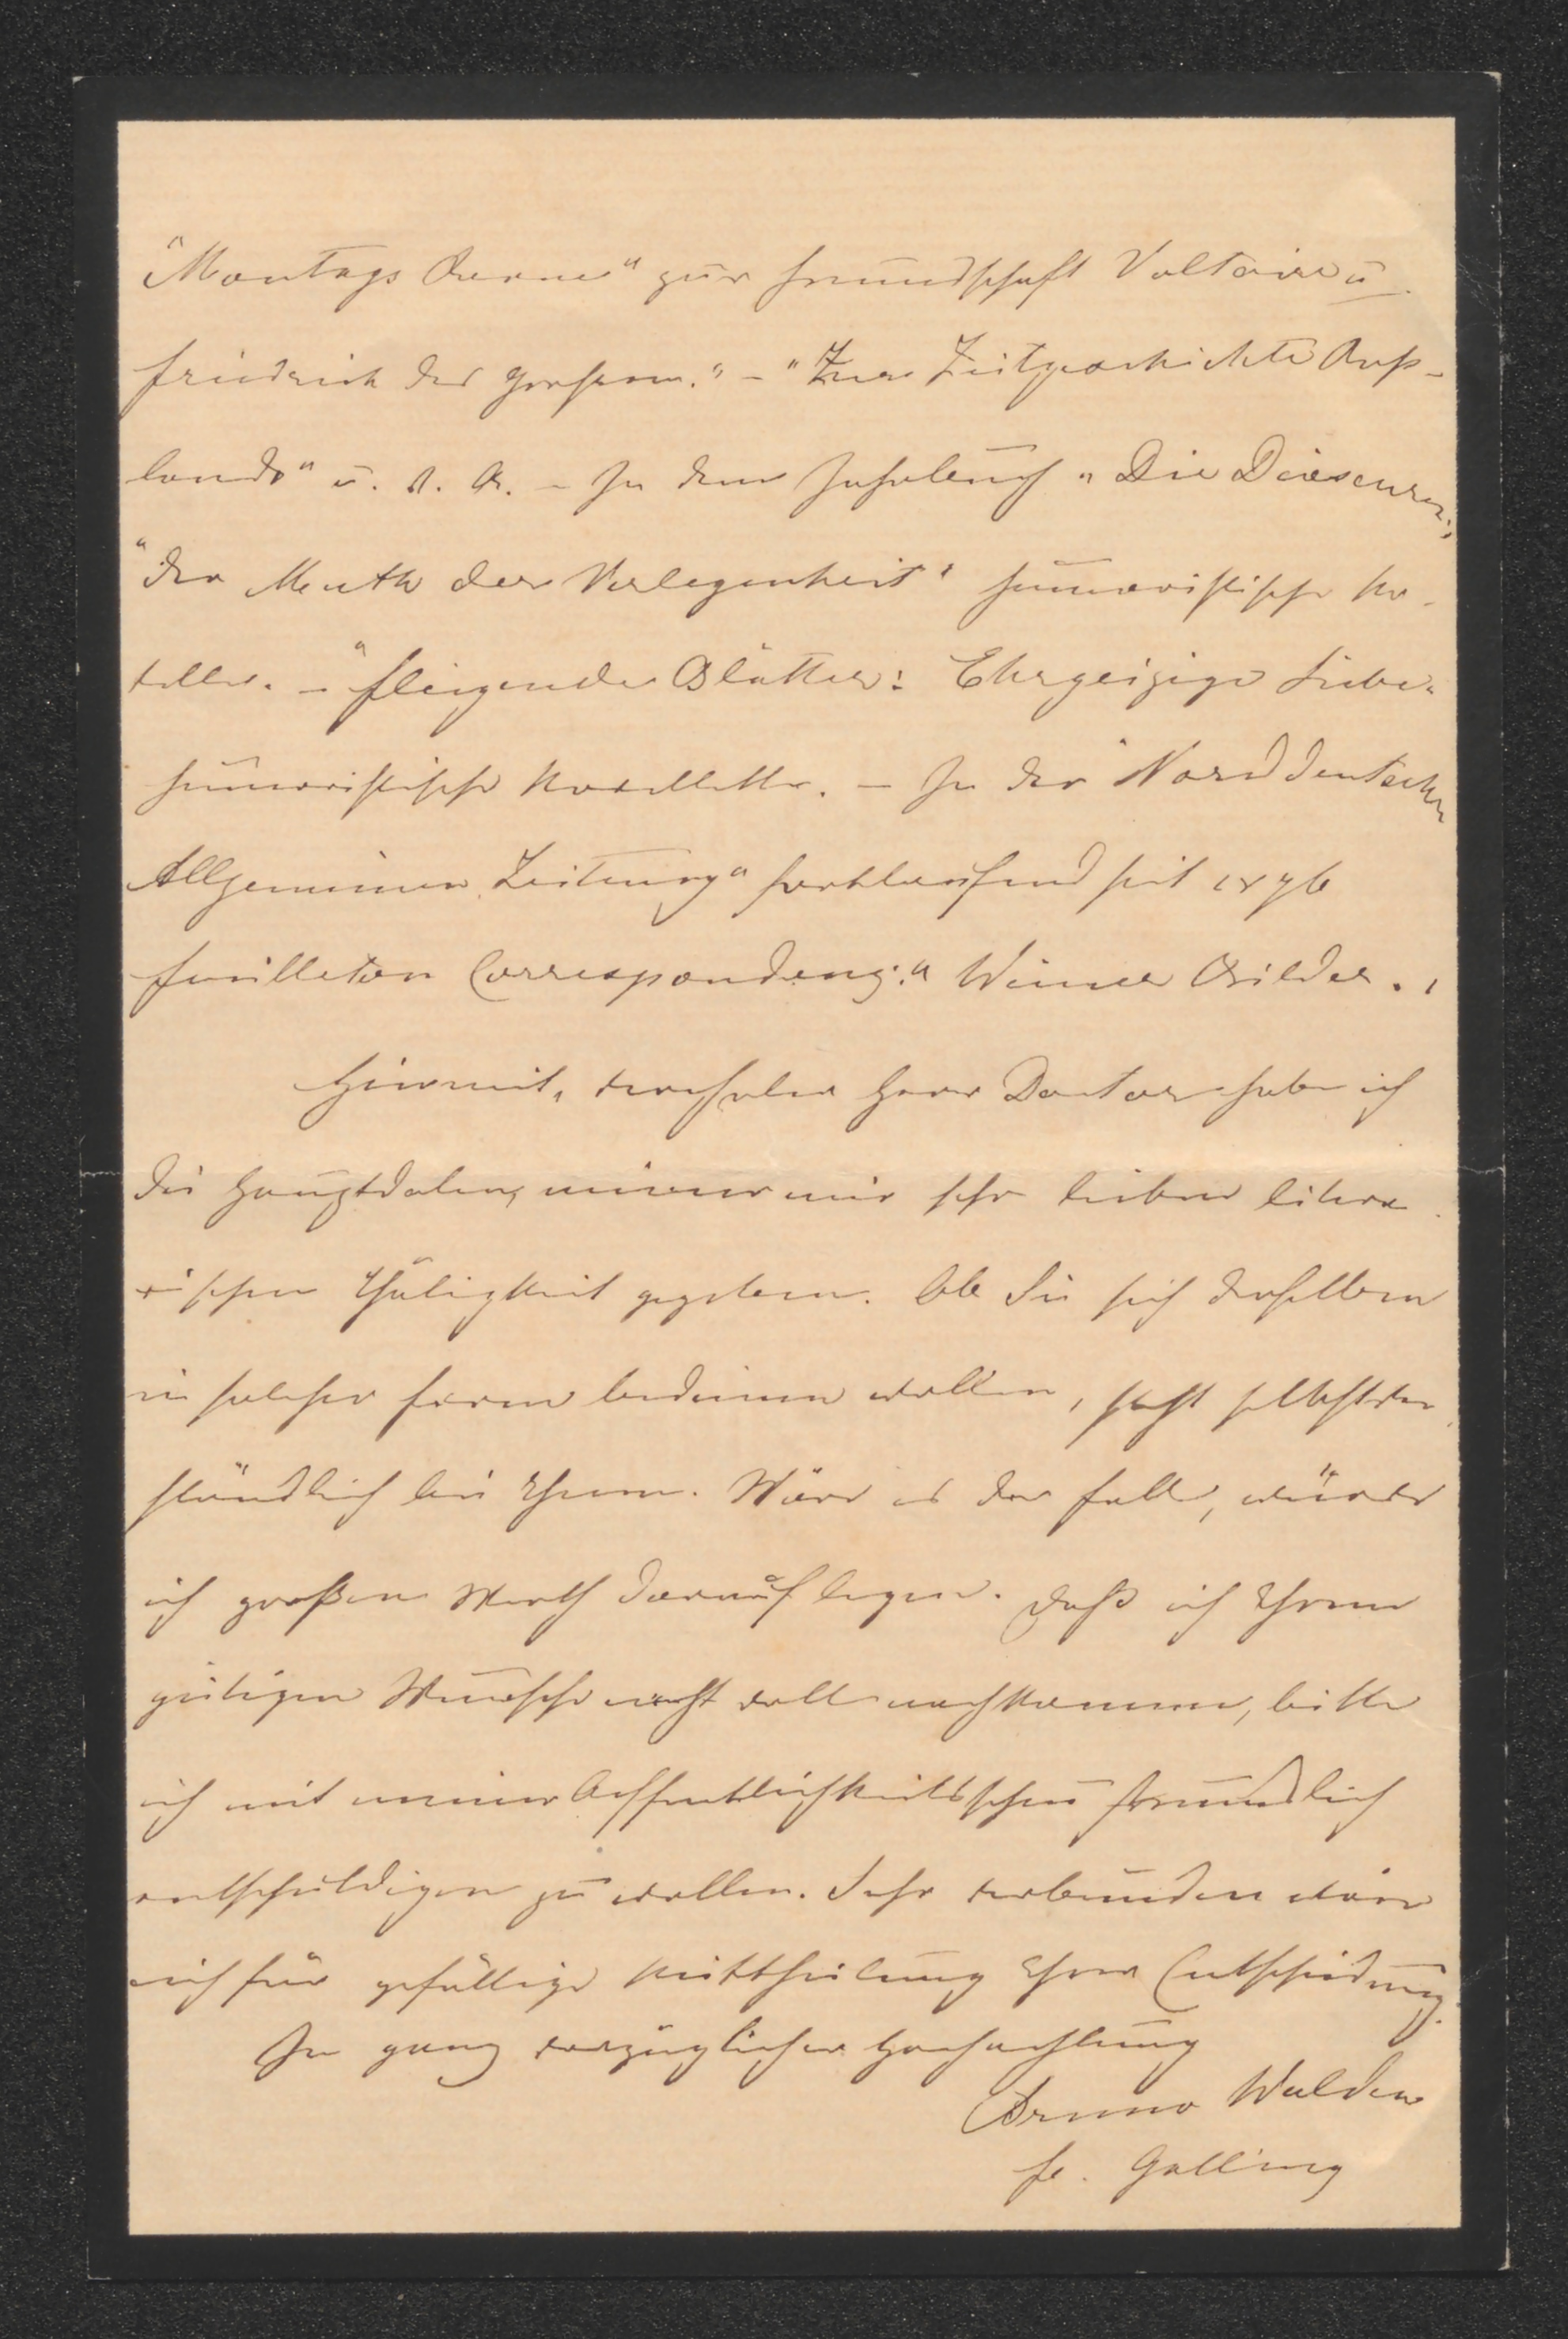 "Montags Revue" zur Freundschaft Voltaire u.
Friedrich des Grossen." – "Zur Zeitgeschichte Ruß-
lands" u. A. – In dem Jahrbuch "Die Dioscuren",
"Der Muth der Verlegenheit" humoristische No-
velle. – "Fliegende Blätter: Ehrgeizige Liebe"
humoristische Novellette. – In der "Norddeutschen
Allgemeinen Zeitung" fortlaufend seit 1876
Feuilleton Correspondenz: "Wiener Bilder."
Hiermit, verehrter Herr Doctor habe ich
die Hauptdaten meiner mir sehr lieben litera-
rischen Thätigkeit gegeben. Ob Sie sich derselben
in solcher Form bedienen wollen, steht selbstver-
ständlich bei Ihnen. Wäre es der Fall, würde
ich großen Werth darauf legen. Daß ich Ihrem
gütigen Wunsche nicht voll nachkomme, bitte
ich mit meiner Oeffentlichkeitsscheu freundlich
entschuldigen zu wollen. Sehr verbunden wäre
ich für gefällige Mittheilung Ihrer Entscheidung.
In ganz vorzüglicher Hochachtung
Bruno Walden
Galliny